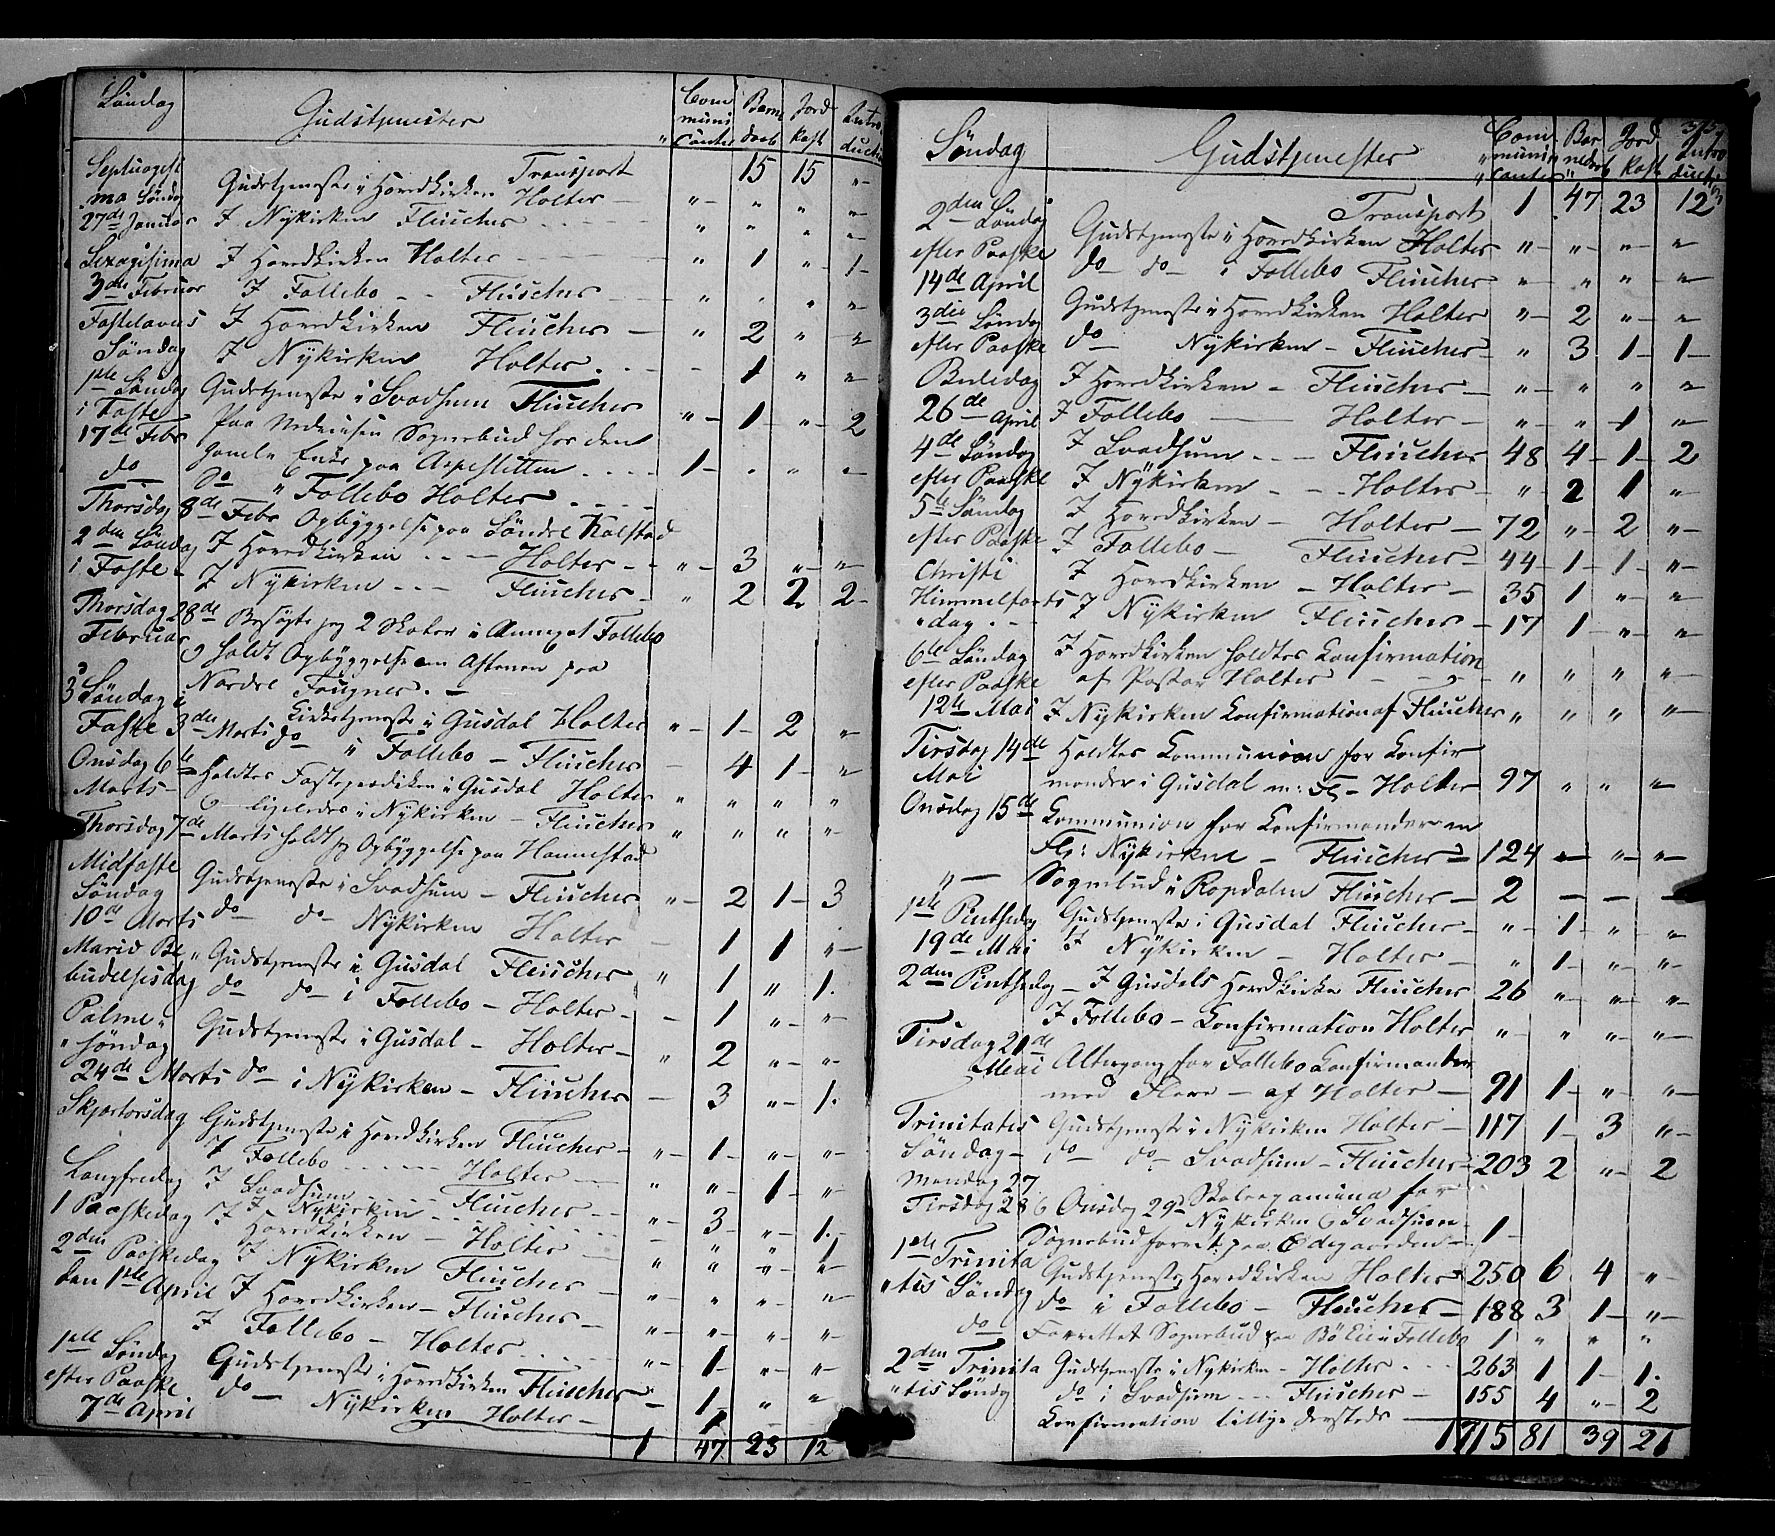 Søndag Gudstjenester Communicanter Barnedaab Jordkast Introduction
Transport 15 15 "
Septuagesi
ma Søndag Gudstjeneste i Hovedkirken Holter — " " " "
27de Januar I Nykirken Fleischer " " " "
Sexagesima I Hovedkirken Holter — " 1 " 1
3die Februar I Follebo — Fleischer " " " "
Fastelavns I Hovedkirken Fleischer — " 2 " "
Søndag I Nykirken Holter — 1 " "
1ste Søndag Gudstjeneste i Svadsum Fleischer " 1 " 2
i Faste
17de Febr Paa Sognebud hos den
gamle Enke paa Aspeslitten 1 " " "
do Do " Follebo Holter
Thorsdag 8de Febr Opbyggelse paa Søndre Kalstad
2den Søndag I Hovedkirken — Holter — " 3 " "
i Faste — I Nykirken — Fleischer — " 2 2 2
Thorsdag 28de Besøgte jeg 2 Skoler i Annexet Follebo
Februar
holdt Opbyggelse om Aftenen paa
Nordre Fougner. —
3 Søndag i
Faste 3die Marts Kirketjeneste i Gusdal Holter " 1 2 "
do i Follebo — Fleischer — 4 1 "
Onsdag 6te Holdtes Fasteprædiken i Gusdal Holter " " " "
Marts — ligeledes i Nykirken — Fleischer " " " "
Thorsdag 7de Marts holdt jeg Opbyggelse paa Hannestad
Midfaste
Søndag Gudstjeneste i Svadsum — Fleischer " 2 1 3
10de Marts do do Nykirken Holter — 1 1 "
Mariæ Be " Gudstjeneste i Gusdal Fleischer " 1 " 1.
budelsesdag do do i Follebo — Holter — 1 " "
Palme "
" Søndag Gudstjeneste i Gusdal — Holter — " 2 " "
24de Marts do — i Nykirken — Fleischer — 3 " 1.
Skjærtorsdag Gudstjeneste i Hovedkirken Fleischer — " 1 " "
I Follebo — Holter " " 1 "
Langfredag I Svadsum
I Nykirken — Fleischer " 3 " 1.
1 Paaskedag I Hovedkirken — Holter — " " " 1
2den Paaskedag I Nykirken Fleischer " " " "
den 1ste April I Hovedkirken — Fleischer " " " "
I Follebo — Holter
1ste Søndag Gudstjeneste i Hovedkirken Fleischer " 1 " "
efter Paaske
7de April do — Nykirken Holter — 1 " "
1 47 23 12
Søndag Gudstjenester Communicanter Barnedaab Jordkast Introduction
Transport 1 47 23 12
2den Søndag Gudstjeneste i Hovedkirken Holter " " " "
efter Paaske do do i Follebo Fleischer " " " "
14de April
3die Søndag Gudstjeneste i Hovedkirken Holter " 2 " "
efter Paaske do Nykirken — Fleischer — " 3 1 1
Bededag I Hovedkirken — Fleischer — " " " "
26de April I Follebo — Holter — " " 1 "
4de Søndag I Svadsum — Fleischer 48 4 1 2
efter Paaske I Nykirken — Holter — " 2 1 "
5te Søndag I Hovedkirken — Holter — 72 " 2 "
efter Paaske I Follebo — Fleischer — 44 1 1 "
Christi I Hovedkirken — Holter — 35 1 " "
Himmelfarts I Nykirken Fleischer — 17 1 " "
" dag
6te Søndag I Hovedkirken holdtes Confirmation
efter Paaske af Pastor Holter — " " " "
12te Mai I Nykirken Confirmation af Fleischer " " " "
Tirsdag 14de Holdtes Communion for Confir
Mai mander i Gusdal m: Fl — Holter — 97 " " "
Onsdag 15de Communion for Confirmanderne m
Fl: Nykirken — Fleischer — 124 — " "
" — Sognebud i Ropdalen Fleischer — 2 — — —
1ste Pintsedag Gudstjeneste i Gusdal Fleischer — " 1 " "
19de Mai I Nykirken — Holter — " 1 " "
2den Pintsedag — I Gusdals Hovedkirke Fleischer 26 " " "
I Follebo — Confirmation Holter " " " "
Tirsdag 21de
Mai Altergang for Follebo Confirmander
med Flere — af Holter — 91 1 " "
Trinitatis Gudstjeneste i Nykirken Holter — 117 1 3 "
Søndag — do do Svadsum — Fleischer 203 2 " 2
Mandag 27
Tirsdag 28 & Onsdag 29de Skoleexamina for
Nykirken & Svadsum
Sognebud forret: paa Ødegaarden — 1 —
1ste Trinita
" tis Søndag Gudstjeneste i Hovedkirken Holter 250 6 4 "
do i Follebo — Fleischer — 188 3 1 "
do Forrettet Sognebud paa Bø Eie i Follebo 1 " " "
2den Trinita Gudstjeneste i Nykirken — Holter 263 1 1 1.
" tis Søndg do i Svadsum — Fleischer — 155 4 " 2
Confirmation tillige dersteds
1715 81 39 21